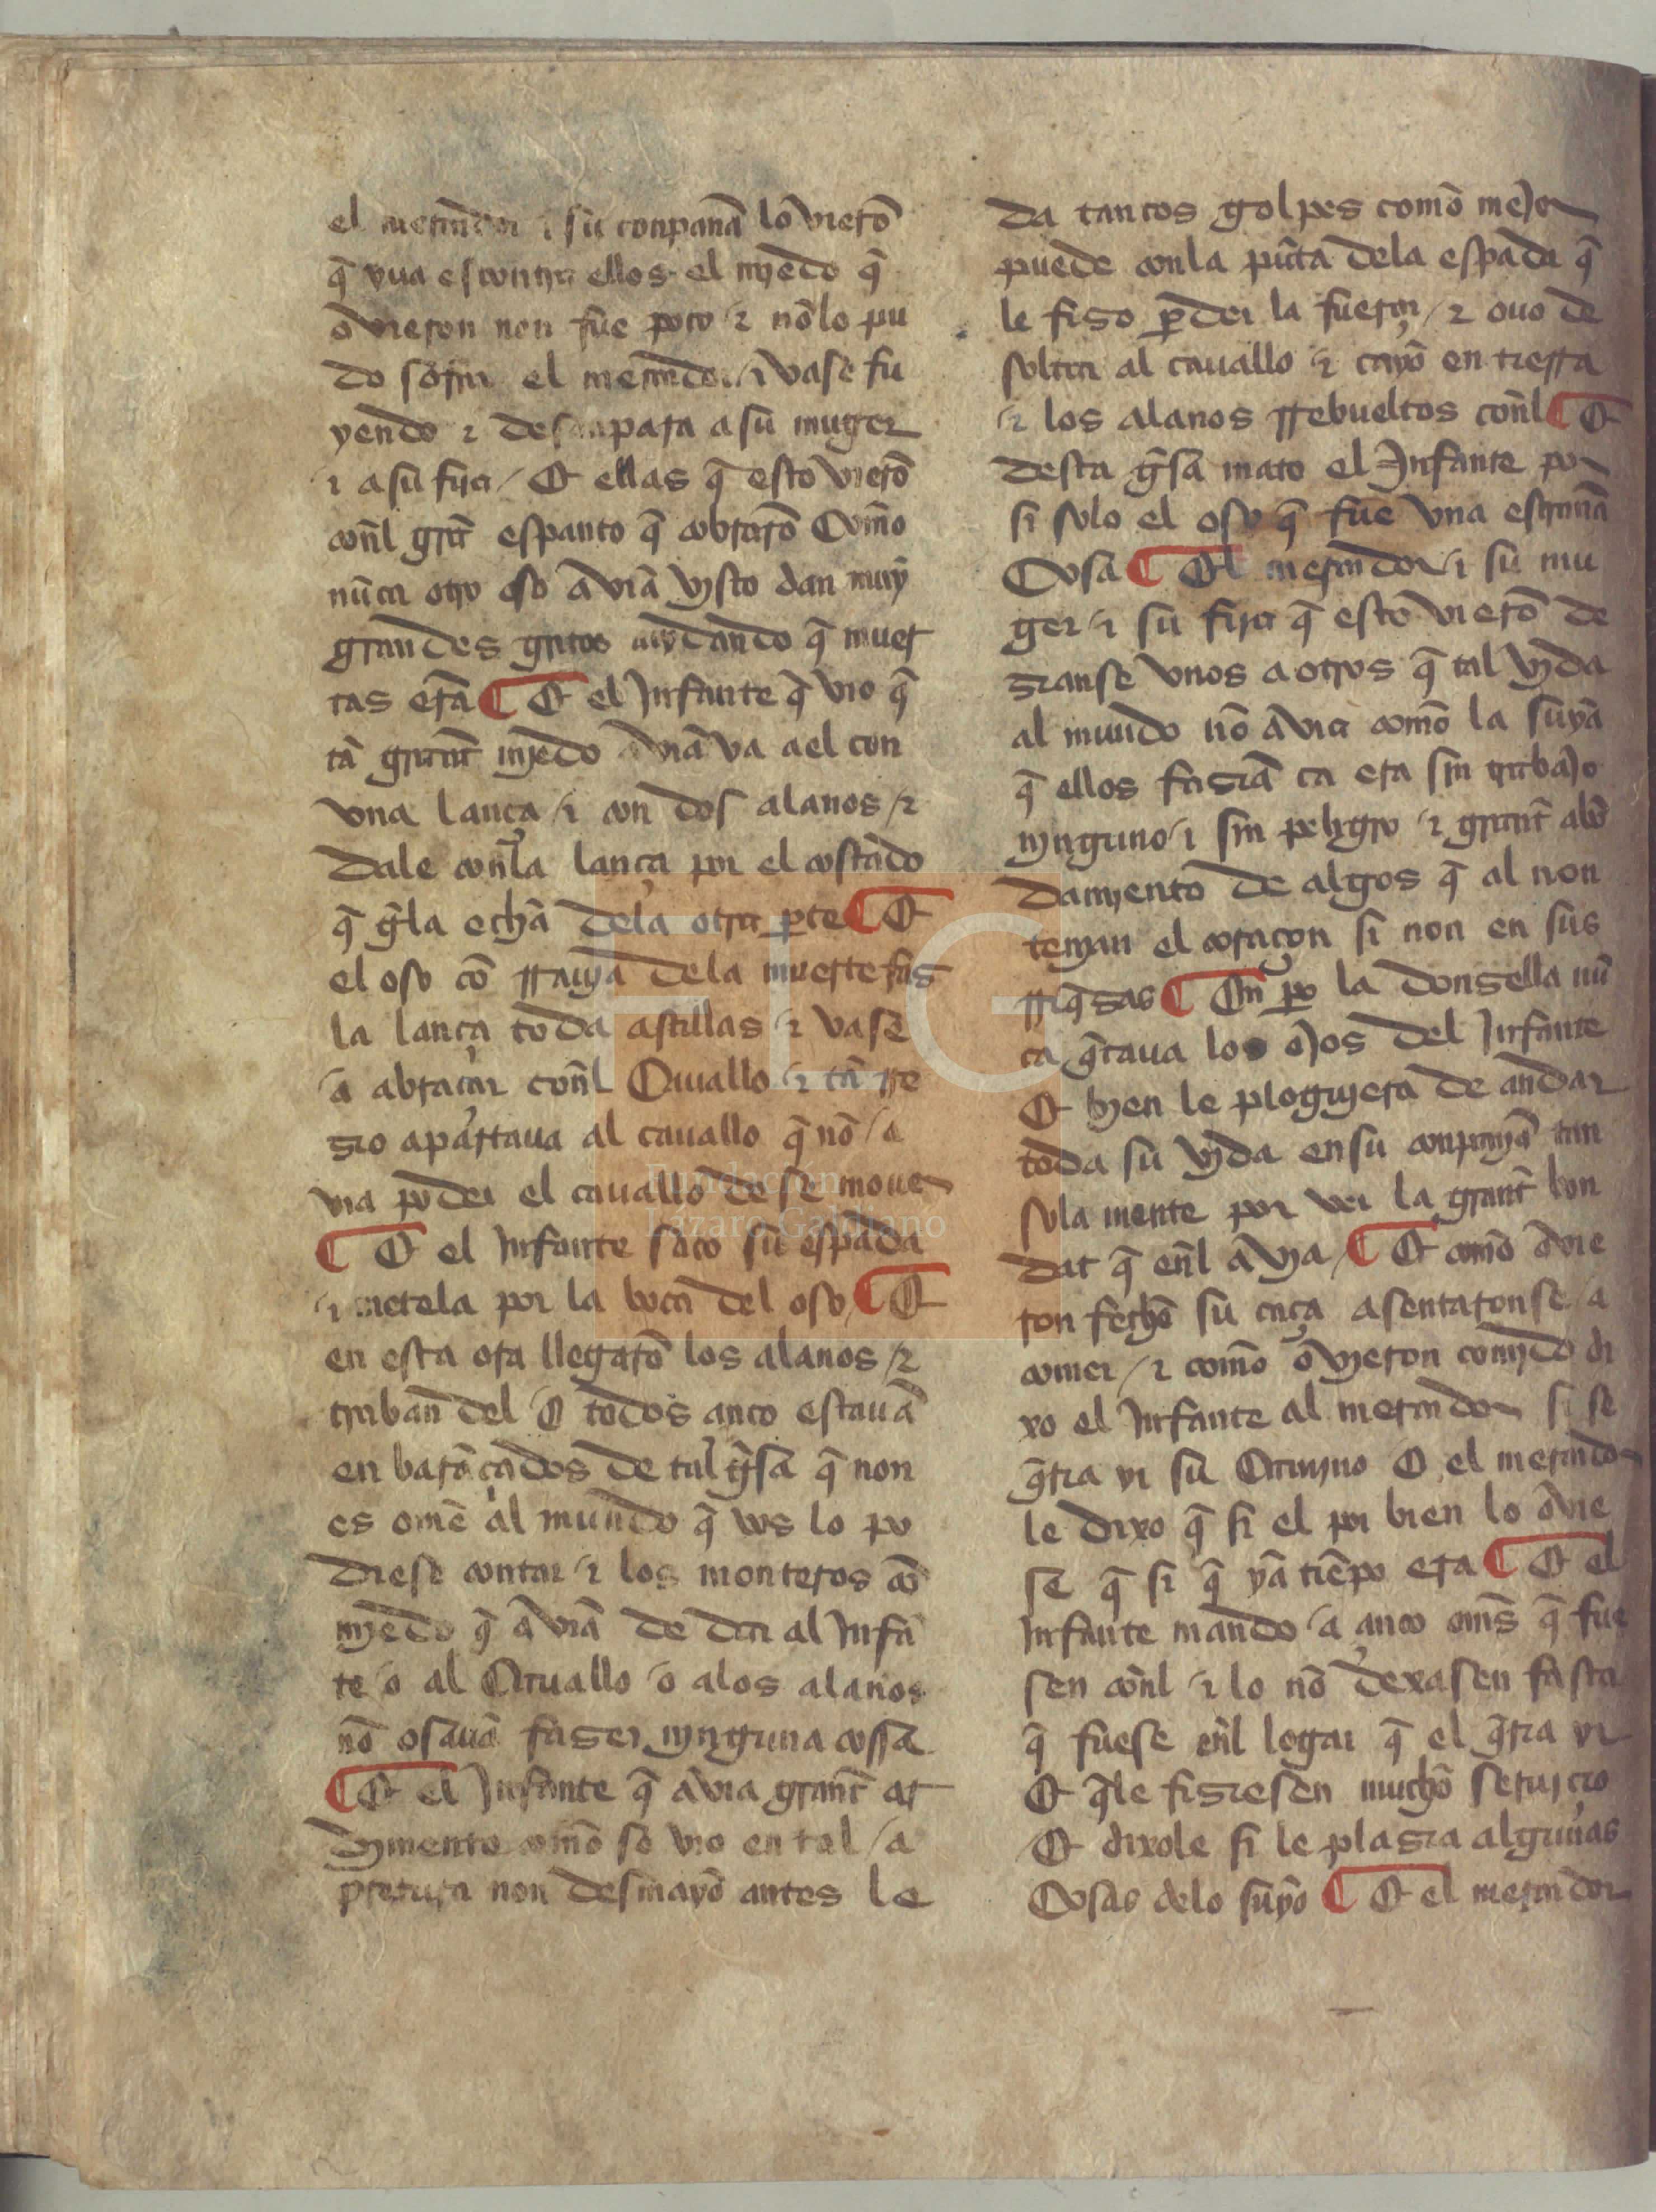 el merĩdor ⁊ su conpanã lo vierõ
q̃ yua escontra ellos el mjedo q̃
ovieron non fue poco ⁊ nõ lo pu
do sofrir el merindor ⁊ vase fu
yendo ⁊ desanpara a su muger
⁊ a su fija / Et ellas q̃ esto vierõ
conl̃ grãt espanto q̃ cobrarõ Comõ
nũca otro oso avian visto dan muy
grandes gritos cuydando q̃ muer
tas erã ¶ Et el Infante q̃ vio q̃
tã grant mjedo aviã va a el con
vna lança / ⁊ con dos alanos / ⁊
dale conla lança por el costado
q̃ gela echã dela otra p̱te ¶ Et
el oso cõ rrauja dela muerte fas
la lança toda astillas / ⁊ vase
a abraçar conl̃ Cauallo / ⁊ tã rre
zio apartaua al cauallo q̃ nõ / a
via poder el cauallo de se mouer
¶ Et el Infante saco su espada
/ ⁊ metela por la boca del oso / ¶ Et
en esta ora llegarõ los alanos / ⁊
traban del / E todos çinco estauã
en baraçados de tal gĩsa q̃ non
es omẽ al mundo q̃ vos lo po
diese contar / ⁊ los monteros cõ
mjedo q̃ aviã de dar al Infã
te / o al Cauallo / o a los alanos
nõ osauã faser njnguna cossa
¶ Et el Infante q̃ avia grant ar
dimento comõ se vio en tal / a
pretura non desmayo antes le
da tantos golpes comõ mejor
puede conla pũta dela espada q̃
le fiso p̱der la fuerça / ⁊ ouo de
soltar al cauallo / ⁊ cayo en tierra
/ ⁊ los alanos rrebueltos conl̃ ¶ Et
desta gĩsa mato el Infante por
si solo el oso q̃ fue vna estrana
Cosa ¶ El merindor / ⁊ su mu
ger / ⁊ su fija q̃ esto vierõ de
zianse vnos a otros q̃ tal vjda
al mundo nõ avia comõ la suya
q̃ ellos fasiã ca era sin trabajo
njnguno / ⁊ sin peligro / ⁊ grant abõ
damjento de algos q̃ al non
tenjan el coraçon si non en sus
rriq̃sas ¶ Em̃ p̱o la donsella nũ
ca q̃taua los ojos del Infante
Et bien le plogujera de andar
toda su vjda en su conpanja tan
sola mente por ver la grant bon
dat q̃ enl̃ avya / ¶ Et comõ ovie
ron fecho su caça asentaronse a
comer / ⁊ comõ ovieron comjdo di
xo el Infante al merindor si se
q̃ria yr su Camjno E el merindor
le dixo q̃ si el por bien lo ovie
se q̃ si q̃ yã tiẽpo era ¶ Et el
Infante mando / a çinco oms̃ q̃ fue
sen conl̃ / ⁊ lo nõ dexasen fasta
q̃ fuese enl̃ logar q̃ el q̃ria yr
Et q̃le fiziesen mucho seruiçio
Et dixole si le plazia algunas
Cosas delo suyo ¶ Et el merindor
FLG
Fundación
Lázaro Galdiano